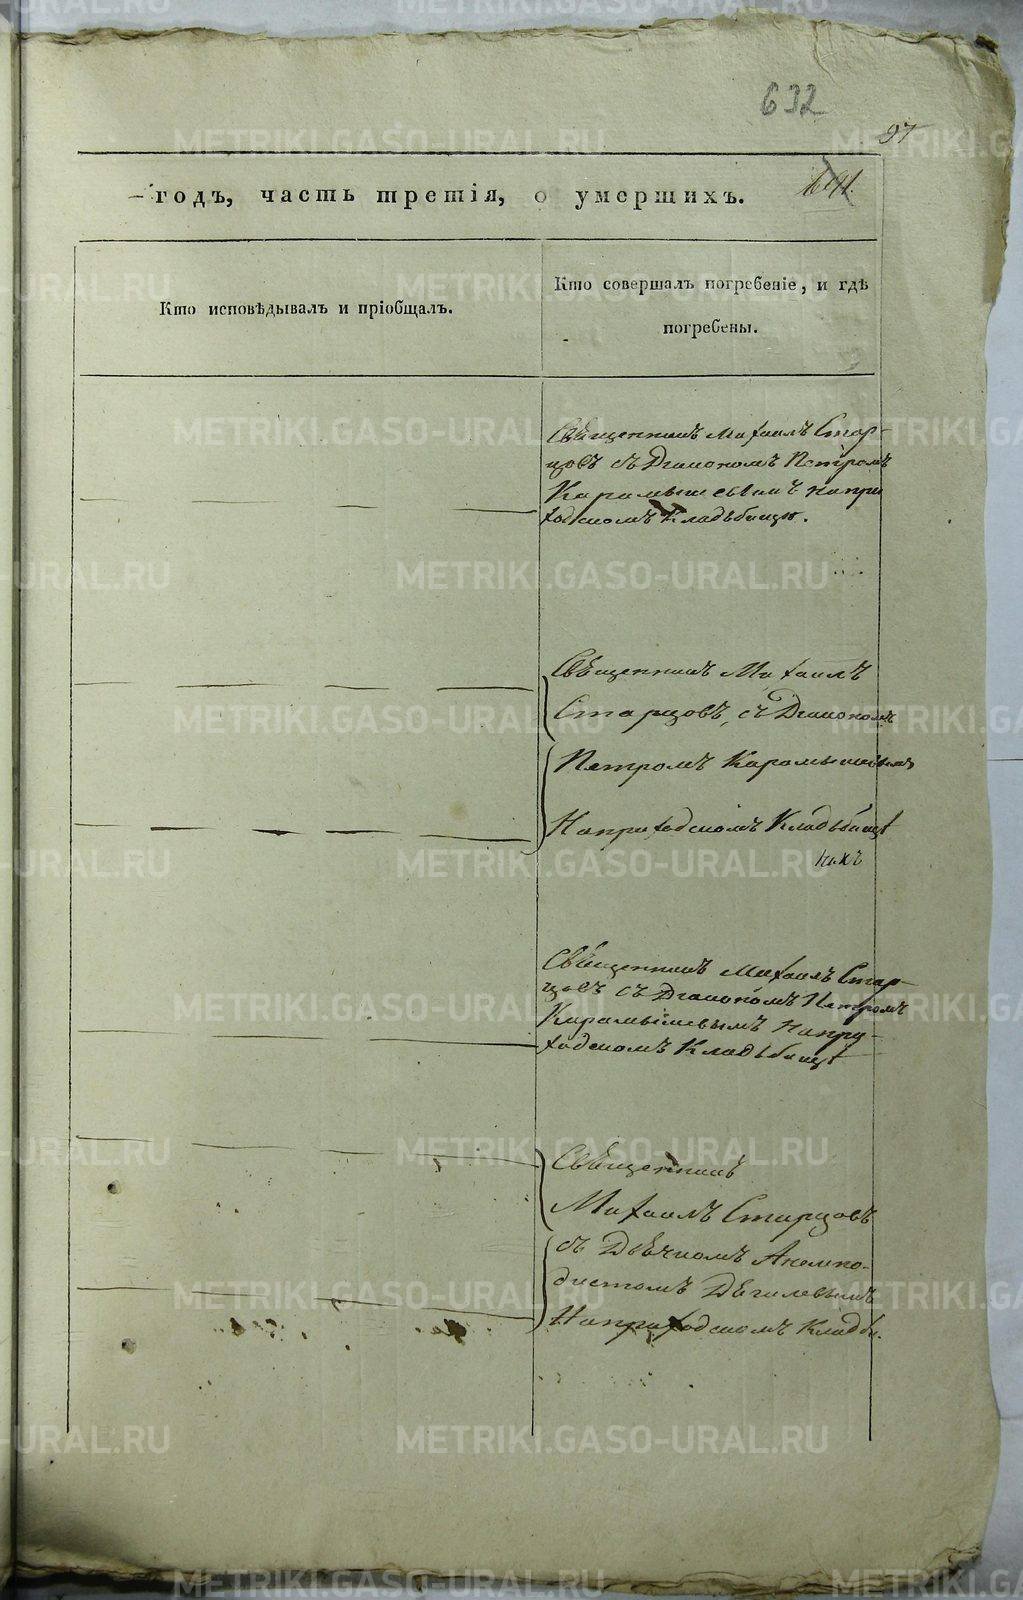 632
97
годъ, часть третія, о умершихъ.
Кто исповѣдывалъ и пріобщалъ.
Кто совершалъ погребеніе, и гдѣ
погребены.
Священникъ Михаилъ Стар-
цовъ съ Діакономъ Петромъ
Карамышевымъ на при
ходскомъ Кладьбищѣ.
Священникъ Михаилъ
Старцовъ, съ Діакономъ
Петромъ Карамышевымъ
На приходскомъ Кладьбищѣ
Священникъ Михаилъ Стар-
цовъ съ Діакономъ Петромъ
Карамышевымъ На при-
ходскомъ Кладьбищѣ
Священникъ
Михаилъ Старцовъ
съ Дьячкомъ Акепси-
Дягилевымъ
На приходскомъ Кладби.
METRIKI.GASO-URAL.RU